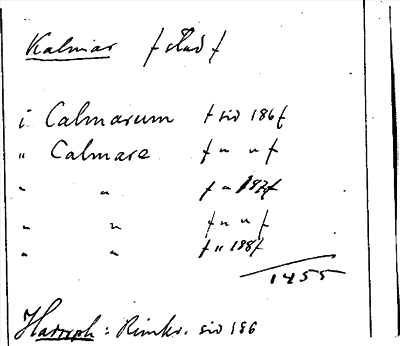 Kalmar f stad f
i Calmarum f sid 186 f
" Calmare f " " f
" " f " 187 f
" " f " " f
" " f " 188 f
1455
: Rimkr. sid 186